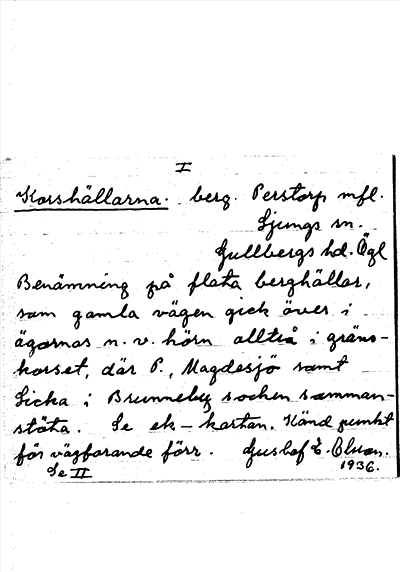 I
Korshällarna. berg. Perstorp mfl.
Ljungs sn.
Gullbergs hd. Ögl
Benämning på flata berghällar,
som gamla vägen gick över i
ägornas n. v. hörn alltså i gräns-
korset, där P., Magdesjö samt
Licka i Brunneby socken samman-
stöta. Se ek-kartan. Känd punkt
för vägfarande förr. Gustaf E. Olsson.
Se II 1936.